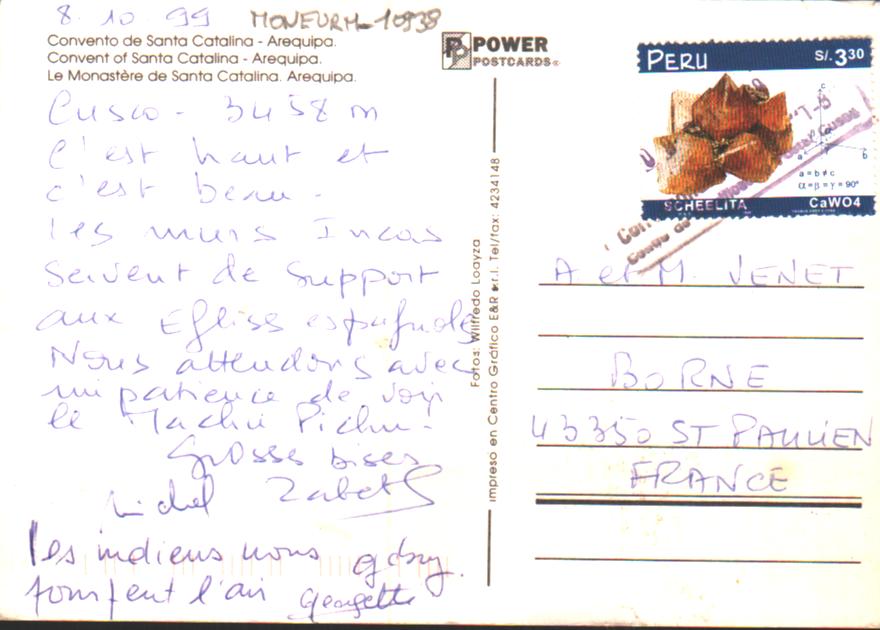 8.10.99 MONEURM-10938
Convento de Santa Catalina - Arequipa.
Convent of Santa Catalina - Arequipa.
Le Monastère de Santa Catalina. Arequipa.
Cusco - 3458 m
C'est haut et
c'est beau -
les murs Incas
servent de support
aux Eglises espagnoles
Nous attendons avec
impatience de voir
le Machu Pichu -
Grosses bises
Michel Zabeth
les indiens nous
pompent l'air Georgette
POWER
POSTCARDS®
Fotos: Wilfredo Loayza
Impreso en Centro Gráfico E&R s.r.l. Tel/fax: 4234148
PERU S/. 3.30
c
a b
a = b ≠ c
α = β = γ = 90°
SCHEELITA CaWO4
A et M. VENET
BORNE
43350 ST PAULIEN
FRANCE